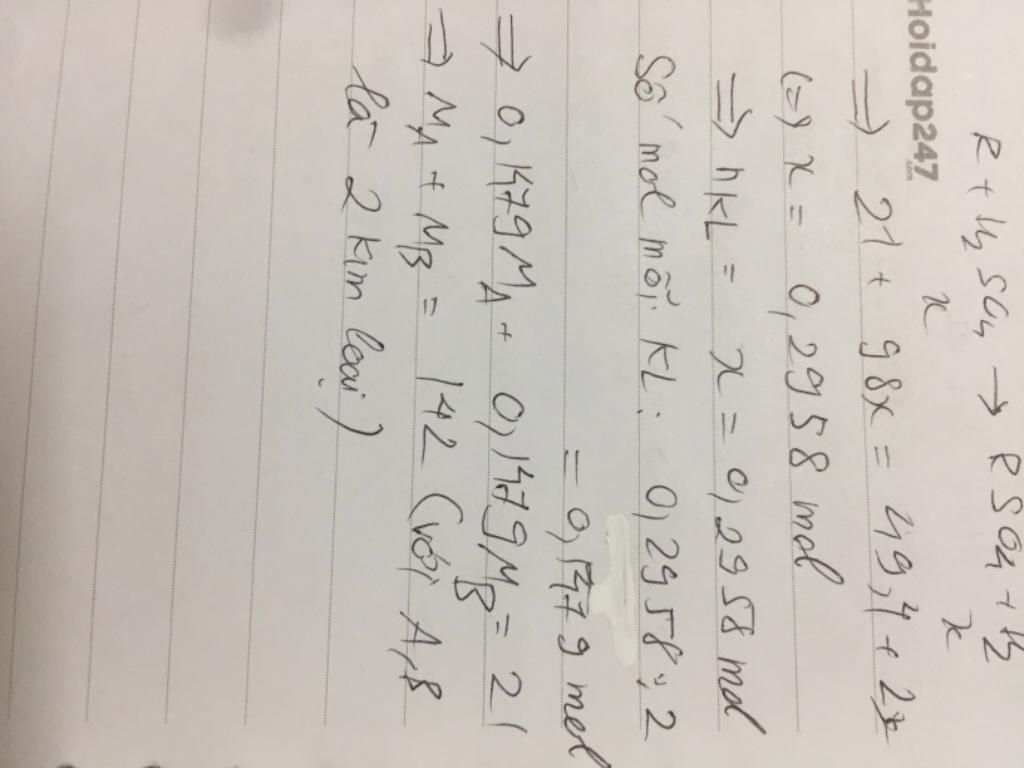 Hoidap247
.com
R + H₂SO₄ → RSO₄ + H₂
x x
=> 21 + 98x = 49,4 + 2x
(=) x = 0,2958 mol
=> nKL = x = 0,2958 mol
Số mol mỗi KL: 0,2958 : 2
= 0,1479 mol
=> 0,1479 MA + 0,1479 MB = 21
=> MA + MB = 142 (với A, B
là 2 kim loại)